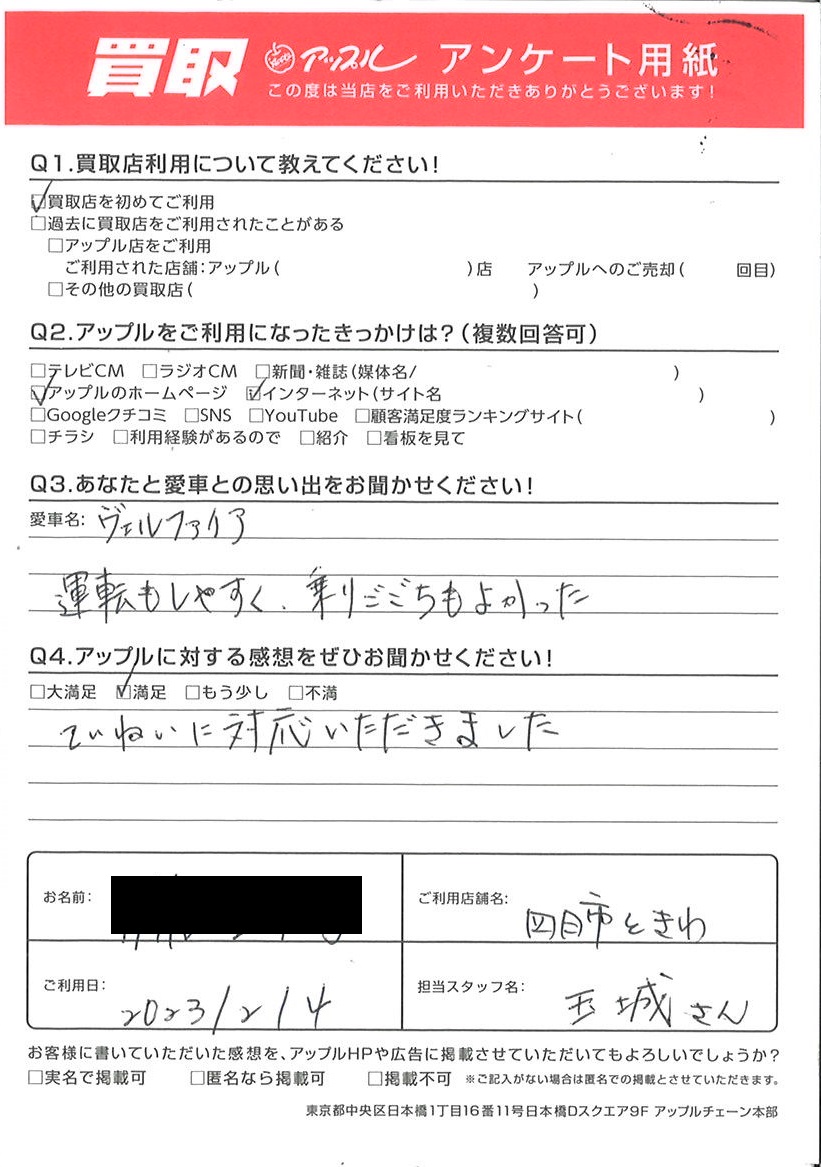 買取 アップル アンケート用紙
この度は当店をご利用いただきありがとうございます!
Q1.買取店利用について教えてください!
☑買取店を初めてご利用
□過去に買取店をご利用されたことがある
□アップル店をご利用
ご利用された店舗:アップル( )店 アップルへのご売却( 回目)
□その他の買取店( )
Q2.アップルをご利用になったきっかけは?(複数回答可)
□テレビCM □ラジオCM □新聞・雑誌(媒体名/ )
☑アップルのホームページ ☑インターネット(サイト名 )
□Googleクチコミ □SNS □YouTube □顧客満足度ランキングサイト( )
□チラシ □利用経験があるので □紹介 □看板を見て
Q3.あなたと愛車との思い出をお聞かせください!
愛車名: ヴェルファイア
運転もしやすく、乗りごごちもよかった
Q4.アップルに対する感想をぜひお聞かせください!
□大満足 ☑満足 □もう少し □不満
ていねいに対応いただきました
お名前: ご利用店舗名: 四日市ときわ
ご利用日: 2023/2/4 担当スタッフ名: 玉城さん
お客様に書いていただいた感想を、アップルHPや広告に掲載させていただいてもよろしいでしょうか?
□実名で掲載可 □匿名なら掲載可 □掲載不可 ※ご記入がない場合は匿名での掲載とさせていただきます。
東京都中央区日本橋1丁目16番11号日本橋Dスクエア9F アップルチェーン本部